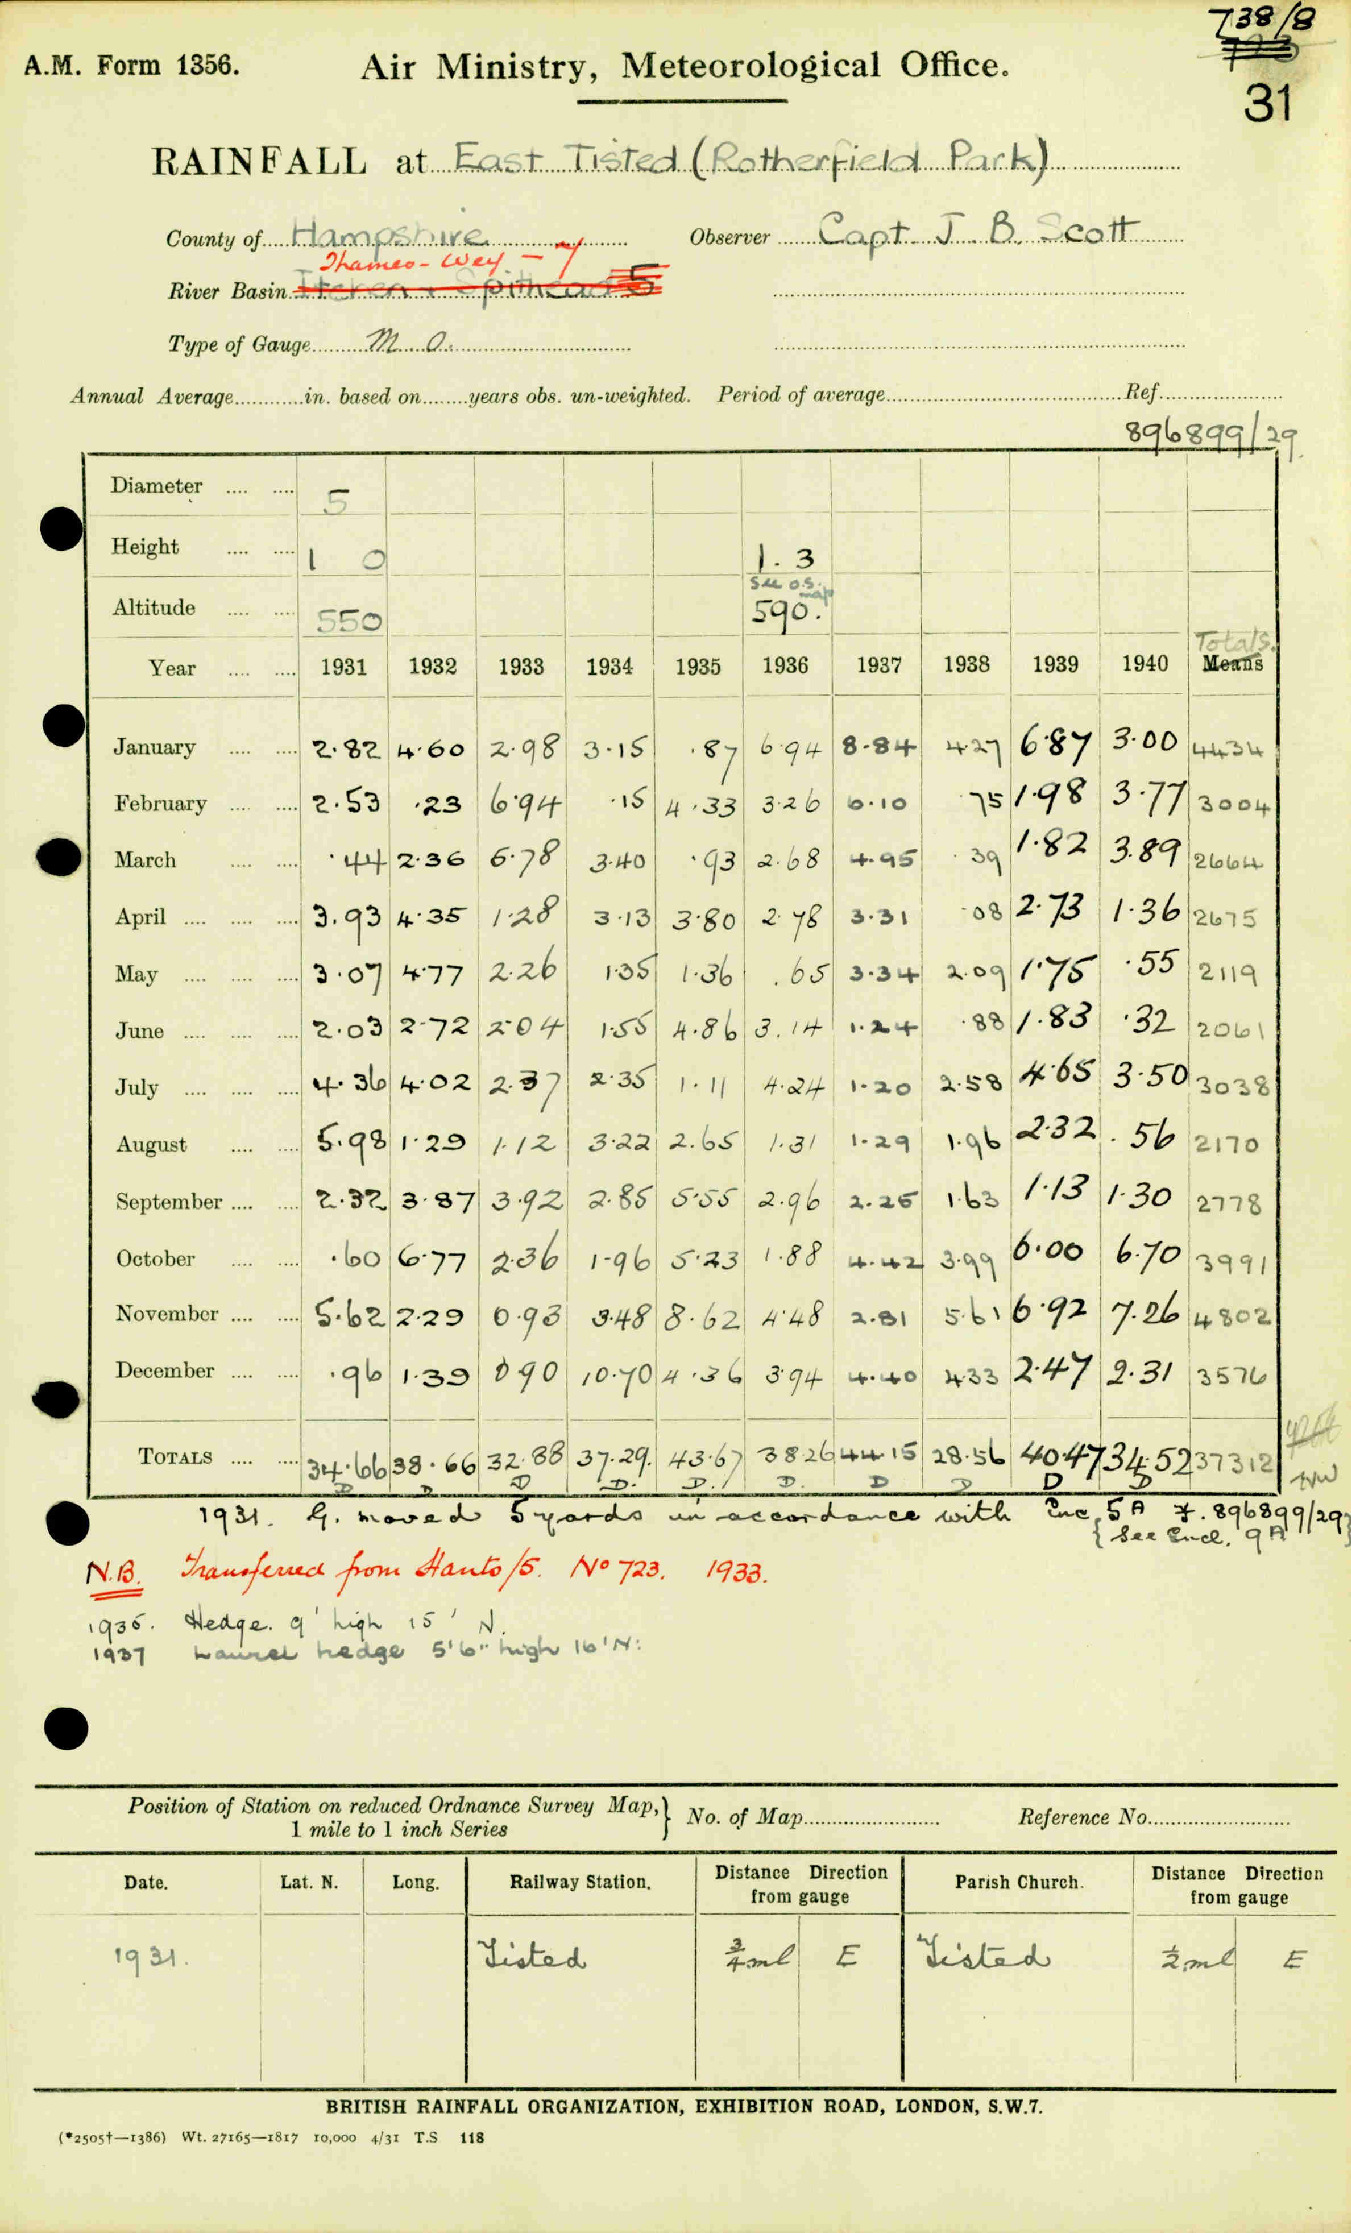 738/8
723
A.M. Form 1356. Air Ministry, Meteorological Office.
31
RAINFALL at East Tisted (Rotherfield Park)
County of Hampshire Observer Capt. J. B. Scott
Thames - Wey - 7
River Basin Itchen + Spithead 5
Type of Gauge M. O.
Annual Average in. based on years obs. un-weighted. Period of average Ref.
896899/29.
Diameter 5
Height 1 0 1. 3
See o.s. map
Altitude 550 590.
Totals.
Year 1931 1932 1933 1934 1935 1936 1937 1938 1939 1940 Means
January 2.82 4.60 2.98 3.15 .87 6.94 8.84 4.27 6.87 3.00 4434
February 2.53 .23 6.94 .15 4.33 3.26 6.10 .75 1.98 3.77 3004
March .44 2.36 5.78 3.40 .93 2.68 4.95 .39 1.82 3.89 2664
April 3.93 4.35 1.28 3.13 3.80 2.78 3.31 .08 2.73 1.36 2675
May 3.07 4.77 2.26 1.35 1.36 .65 3.34 2.09 1.75 .55 2119
June 2.03 2.72 2.04 1.55 4.86 3.14 1.24 .88 1.83 .32 2061
July 4.36 4.02 2.37 2.35 1.11 4.24 1.20 2.58 4.65 3.50 3038
August 5.98 1.29 1.12 3.22 2.65 1.31 1.29 1.96 2.32 .56 2170
September 2.32 3.87 3.92 2.85 5.55 2.96 2.25 1.63 1.13 1.30 2778
October .60 6.77 2.36 1.96 5.23 1.88 4.42 3.99 6.00 6.70 3991
November 5.62 2.29 0.93 3.48 8.62 4.48 2.81 5.61 6.92 7.26 4802
December .96 1.39 0 90 10.70 4.36 3.94 4.40 4.33 2.47 2.31 3576
TOTALS 34.66 38.66 32.88 37.29. 43.67 38.26 44.15 28.56 40.47 34.52 37312
D D D D. D. D. D D D D
1931. G. moved 5 yards in accordance with Enc. 5A F. 896899/29
{See Encl. 9A}
N.B. Transferred from Hants/5. No 723. 1933.
1936. Hedge. 9' high 15' N.
1937 Laurel hedge 5'6" high 16'N:
Position of Station on reduced Ordnance Survey Map, 1 mile to 1 inch Series } No. of Map Reference No.
Date. Lat. N. Long. Railway Station. Distance Direction from gauge Parish Church. Distance Direction from gauge
1931. Tisted ¾ ml E Tisted ½ ml E
BRITISH RAINFALL ORGANIZATION, EXHIBITION ROAD, LONDON, S.W.7.
(*2505†—1386) Wt. 27165—1817 10,000 4/31 T.S 118